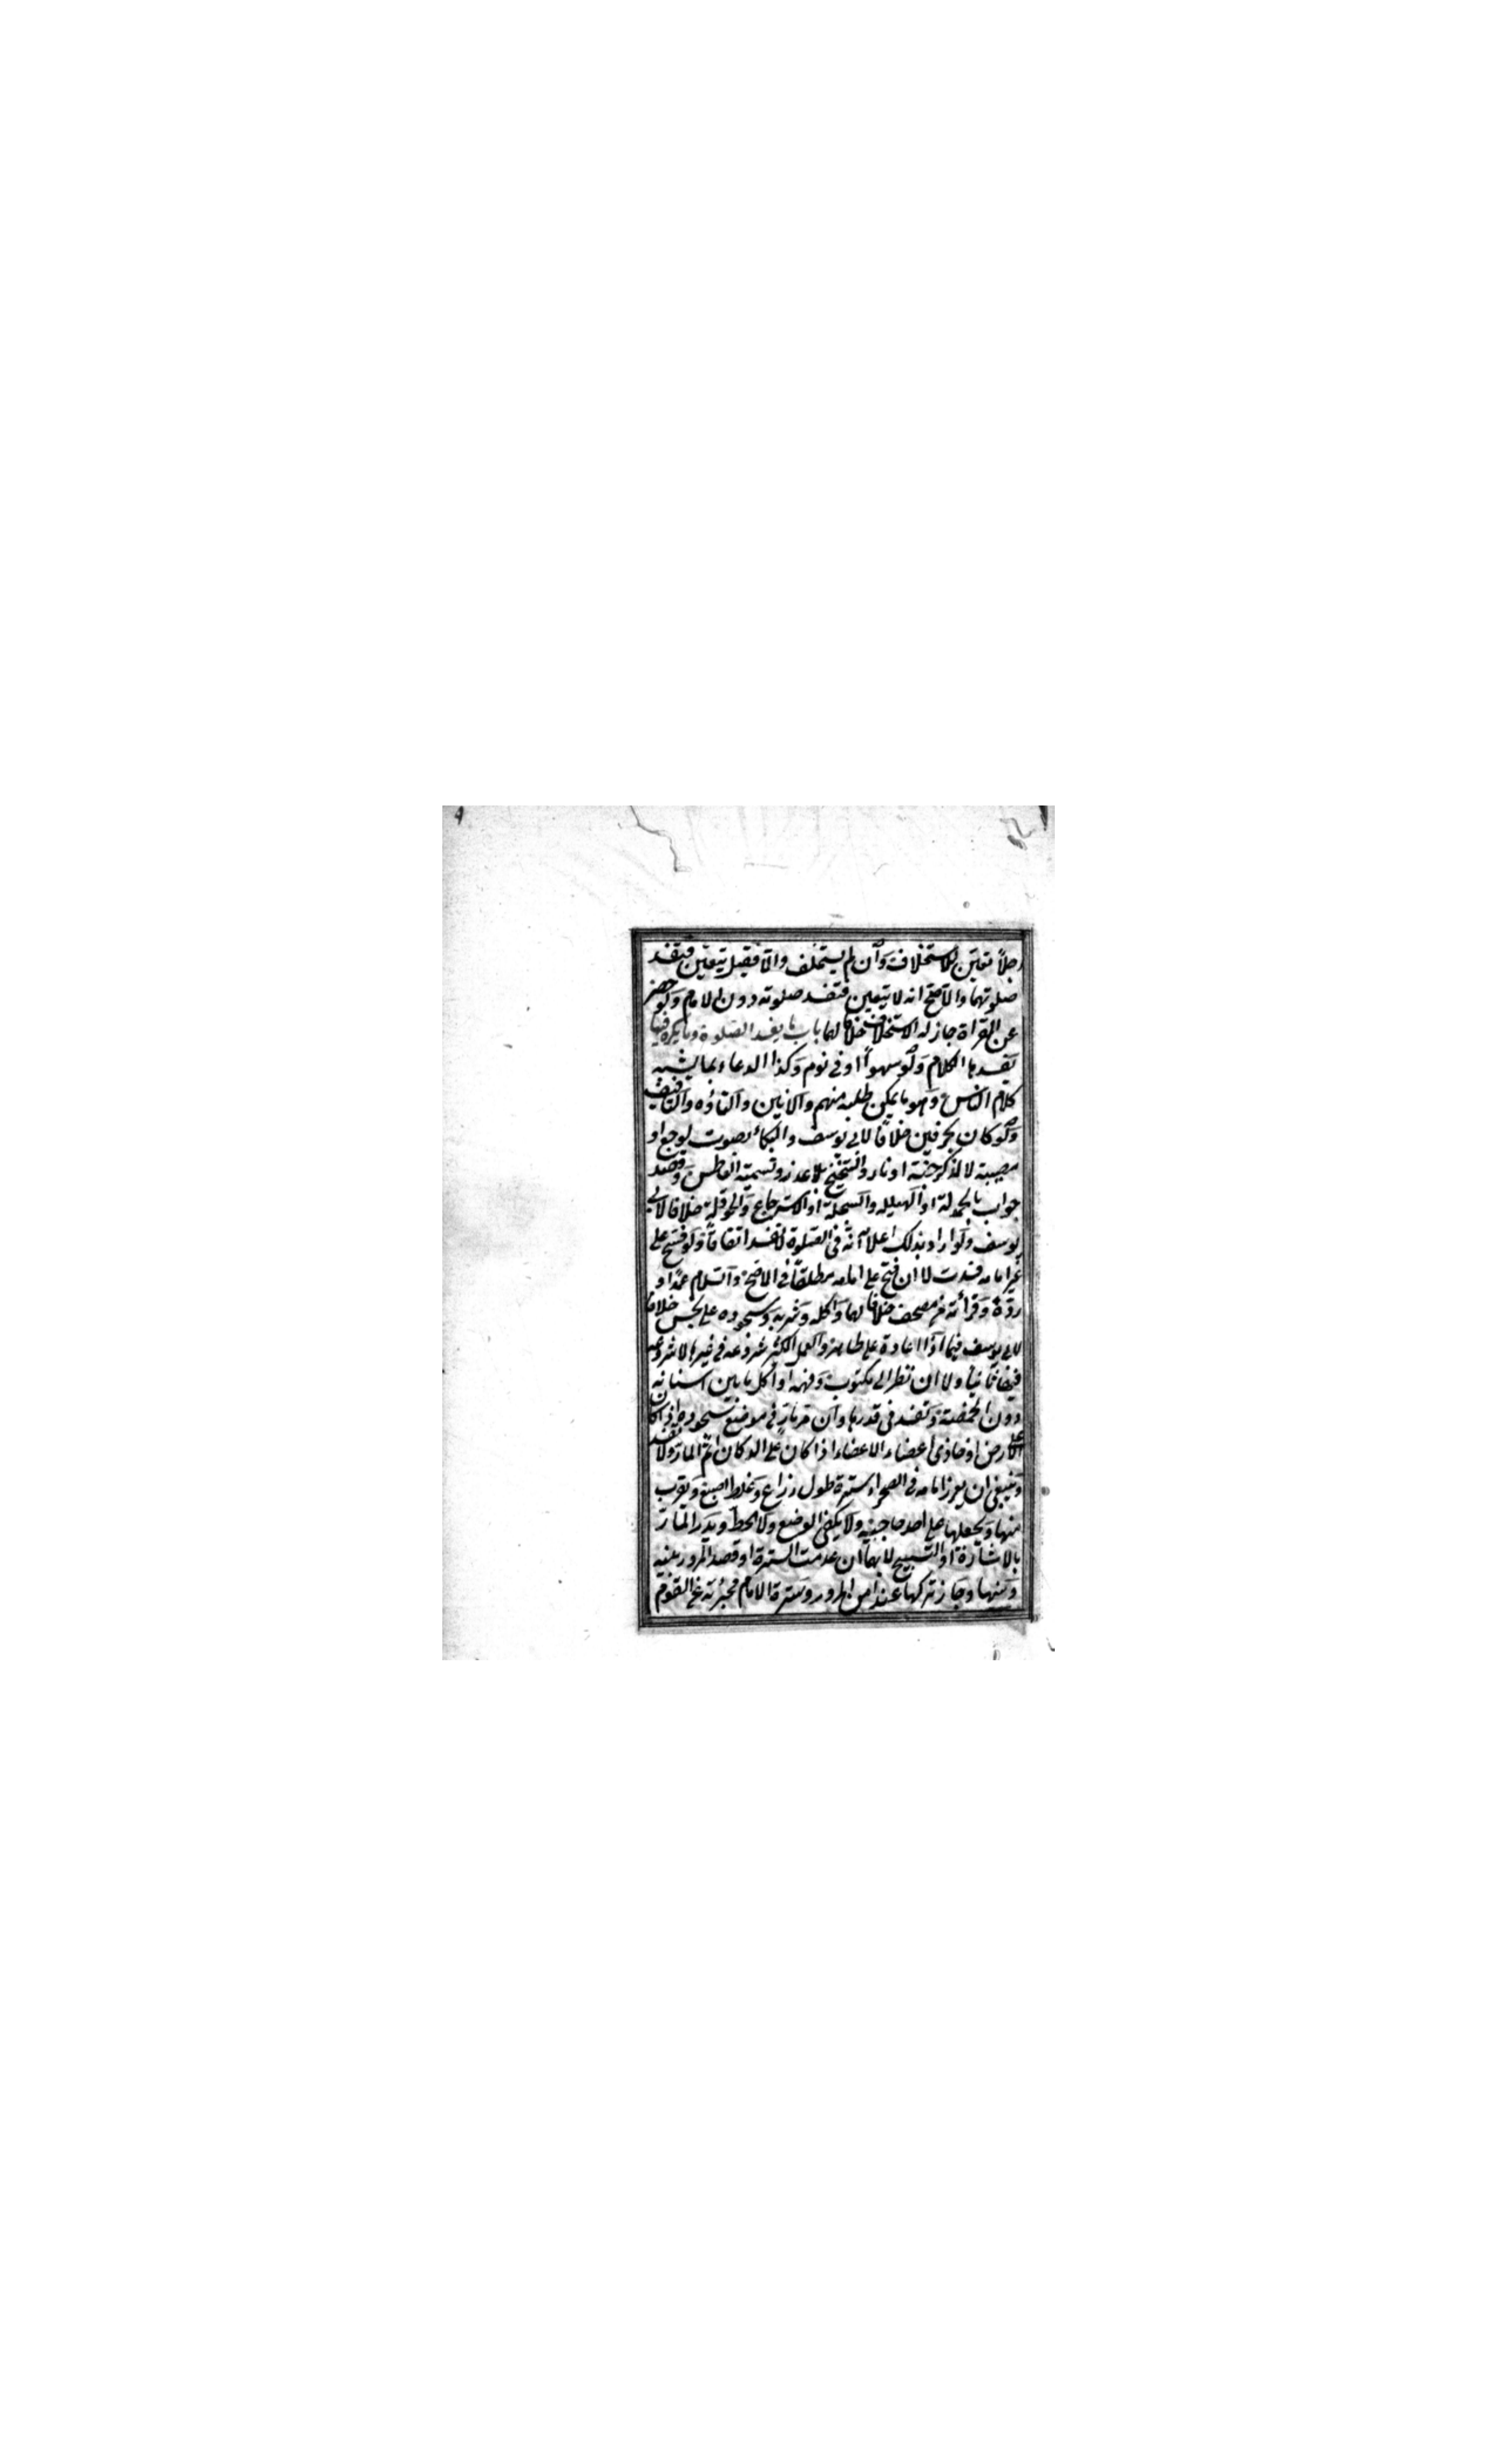 رجلاً تعين للاستخلاف وان لم يستخلف والا فقيل يتعين فتفسد
صلوتهما والاصح انه لا يتعين فتفسد صلوته دون الامام ولو حصر
عن القراة جاز له الاستخلاف خلافا لهما باب ما يفسد الصلوة وما يكره فيها
تفسدها الكلام ولو سهواً او في نوم وكذا الدعاء بما يشبه
كلام الناس وهو ما يمكن طلبه منهم والانين والتاوه والتافيف
ولو كان بحرفين خلافاً لابي يوسف والبكاء بصوت لوجع او
مصيبة لا لذكر جنة او نار والتنحنح بلا عذر وتسمية العاطس وقصد
جواب بالحمدلة او الهيللة والسبحلة او الاسترجاع والحوقلة خلافا لابي
يوسف ولو اراد بذلك اعلامه انه في الصلوة لا تفسد اتفاقاً ولو فتح على
غير امامه فسدت لا ان فتح على امامه مطلقاً في الاصح والسلام عمداً او
ردّه وقرائته من مصحف خلافا لهما واكله وشربه وسجوده على نجس خلافا
لابي يوسف فيما اذا اعاده على طاهر والعمل الكثير شروعه في غيرها لا شروعه
فيها ثانياً ولا ان نظر الى مكتوب وفهمه او اكل ما بين اسنانه
دون الحمصة وتفسد في قدرها وان مر مار في موضع سجوده اذا كان
على الارض او حاذى اعضاء الاعضاء اذا كان على الدكان اثم المار ولا تفسد
وينبغي ان يغرز امامه في الصحراء سترة طول ذراع وغلظ اصبع ويقرب
منها ويجعلها على احد حاجبيه ولا يكفي الوضع ولا الخط ويدرأ المار
بالاشارة او التسبيح لا بهما ان عدمت السترة او قصد المرور بينه
وبينها وجاز تركها عند امن المرور وسترة الامام مجزئة عن القوم